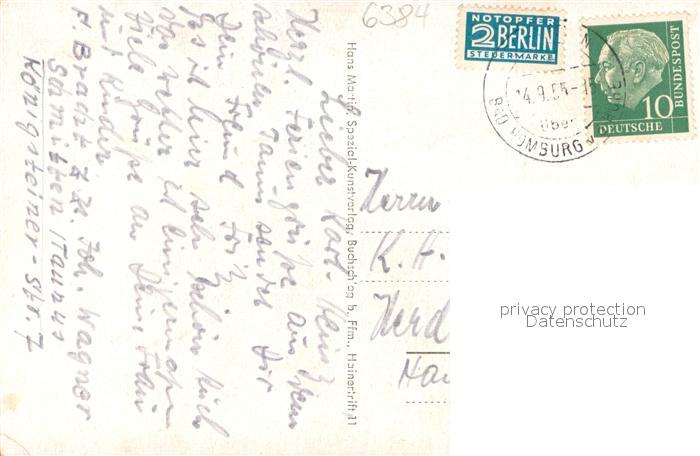 6384
NOTOPFER
2 BERLIN
STEUERMARKE
14.9.55-1
über
BAD HOMBURG v
10
DEUTSCHE
BUNDESPOST
Lieber Karl-Heinz
Herzl. Feriengrüße aus dem
schönen Taunus sendet Dir
Dein Freund Fritz
Es ist hier sehr schön auch
das Wetter ist
Viele Grüße an Deine Frau
und Kinder.
A. Brandt z.Zt. Joh. Wagner
Schmitten / Taunus
Königsteiner-Str. 7
Hans Martin, Spezial-Kunstverlag, Buchschlag b. Ffm., Hainertrift 11
Herrn
K. H.
Herd
Hau
privacy protection
Datenschutz